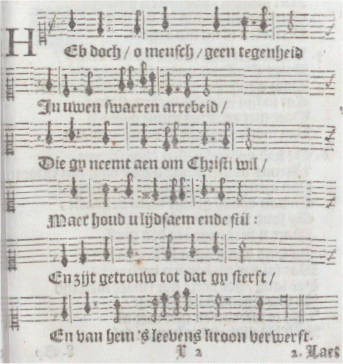 HEb doch / o mensch / geen tegenheid
In uwen swaeren arrebeid /
Die gy neemt aen om Christi wil /
Maer houd u lijdsaem ende stil :
En zijt getrouw tot dat gy sterft /
En van hem 's leevens kroon verwerft.
X 2 2. Laet